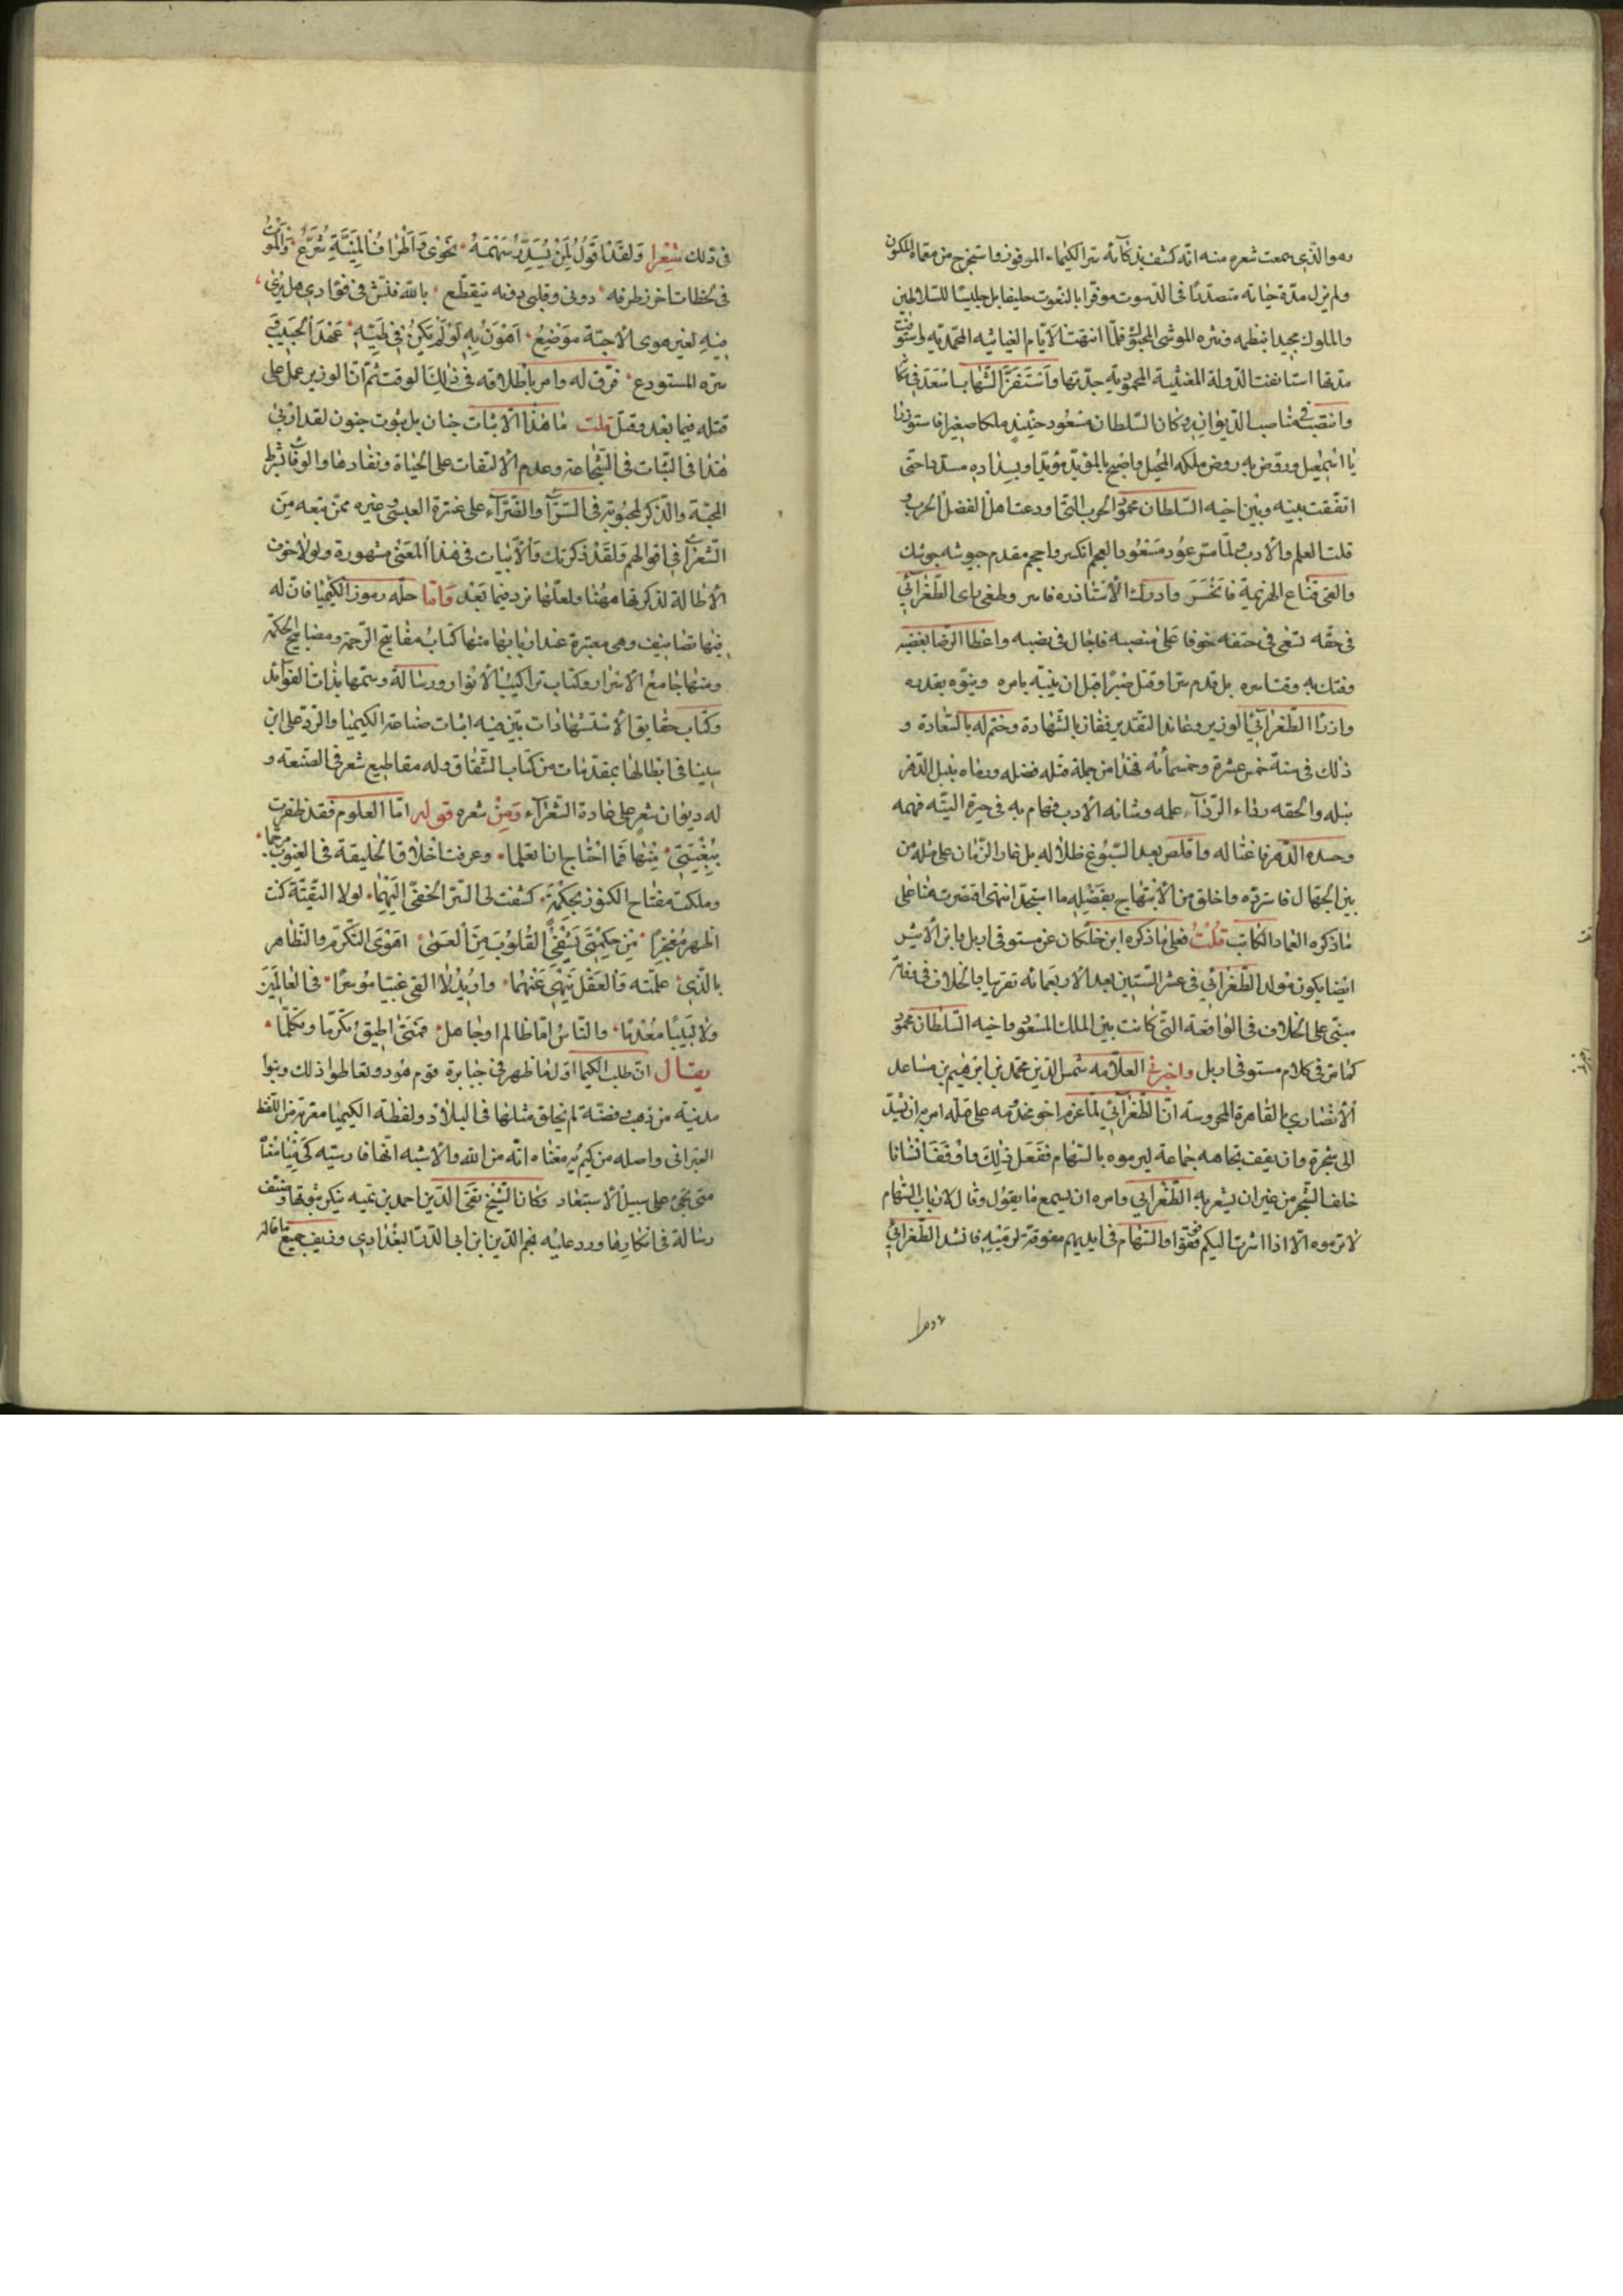 وهو الذي سمعت شعره منه انه كشف بذكائه سر الكيمياء المرموز فاستخرج من معماه المكنون
ولم يزل مدة حياته متصدرا في الدسوت موقرا بالنعوت حليفا بل جليسا للسلاطين
والملوك مجيدا بنظمه ونثره الموشى المحبر فلما انتهت الايام الغياثيه المحمديه واستوفت
مدتها استانفت الدولة المغيثية المحمودية جدتها
وانتصب في مناصب الديوان وكان السلطان مسعود حينئذ ملكا صغيرا فاستوزر
يا اسمعيل وروض به روض ملكه المخيل واضح بالمؤيد مؤيدا وبسداده مسددا حتى
اتفقت بينه وبين اخيه السلطان محمود الحرب التي اودعت اهل الفضل الحرب و
قلت العلم والادب ولما عود مسعود انكسر واحجم مقدم جيوشه جيوشك
والقى قناع الهزيمة وادرك الاستاذ فاسر وطغى راى الطغرائي
في حقه لسعى في حتفه خوفا على منصبه فاجال في نصبه واعطا الرضا بغضبه
وفتك به وقت اسره بل قدم سرا وقتل صبرا قبل ان ينبه بامره وينوه بقدره
واذرا الطغرائي الوزير وعاند التقدير ففاز بالشهادة وختم له بالسعادة و
ذلك في سنة خمس عشرة وخمسمائه فهذا من جملة قتله فضله ورماه بنبل الدهر
نبله والحقه رداء الردآء علمه وشانه الادب فهام به في حيرة التيه فهمه
وحسده الدهر فاغتاله واقلص بعد السبوغ ظلاله بل غار الزمان على مثله من
بين الجهال فاسترده واخلق من الابتهاج بفضله ما استجد انتهى اقتصرت هنا على
ما ذكره العماد الكاتب قلت فعلى ما ذكره ابن خلكان عن مستوفى اربل وابن الاثير
ايضا يكون مولد الطغرائي في عشر الستين بعد الاربعمائه تقريبا والخلاف في وفاته
مبني على الخلاف في الواقعة التي كانت بين الملك المسعود واخيه السلطان محمود
كما مر في كلام مستوفى اربل واخبرني العلامه شمس الدين محمد بن ابراهيم بن ساعد
الانصاري بالقاهرة المحروسة ان الطغرائي لما عزم اخو مخدومه على قتله امر به ان يشد
الى شجرة وان يقف تجاهه جماعة ليرموه بالسهام ففعل ذلك واوقف انسانا
خلف الشجر من غير ان يشعر به الطغرائي وامره ان يسمع ما يقول وقال لارباب السهام
لا ترموه الا اذا اشرت اليكم فوقفوا والسهام في ايديهم مفوقة لرميه فانشد الطغرائي
في ذلك شعرا ولقد اقول لمن يسدد سهمه نحوى واطراف المنية شرع والموت
في لحظات اخزر طرفه دوني وقلبي دونه يتقطع بالله فتش في فؤادي هل يرى
فيه لغير هوى الاحبة موضع اهون به لو لم يكن في طيه عهد الحبيب و
سره المستودع فرق له وامر باطلاقه في ذلك الوقت ثم ان الوزير عمل على
قتله فيما بعد وقتل قلت ما هذا الا ثبات جنان بل ثبوت جنون لقد اربى
هذا في الثبات في الشجاعة وعدم الالتفات على الحياة ونفادها والوفا بشرط
المحبة والذكر لمحبوبته في السرآء والضرآء على عنترة العبسي وغيره ممن تبعه من
الشعرآء في اقوالهم ولقد ذكرتك والابيات في هذا المعنى مشهورة ولولا خوف
الاطالة لذكرتها ههنا ولعلها ترد فيما بعد واما حله رموز الكيميا فان له
فيها تصانيف وهى معتبرة عند اربابها منها كتاب مفاتيح الرحمة ومصابيح الحكمة
ومنها جامع الاسرار وكتاب تراكيب الانوار ورسالة وسمها بذات الفوائد
وكتاب حقايق الاستشهادات بين فيه اثبات صناعة الكيميا والرد على ابن
سينا في ابطالها بمقدمات من كتاب الشفاء وله مقاطيع شعر في الصنعه و
له ديوان شعر على عادة الشعرآء ومن شعره قوله اما العلوم فقد ظفرت
ببغيتي منها فما احتاج ان اتعلما وعرفت اخلاق الخليقة في الغيوب مرجما
وملكت مفتاح الكنوز بحكمة كشفت لى السر الخفى المبهما لولا التقية كنت
اظهر معجزا من حكمتي يشفى القلوب من العمى اهوى التكرم والتظاهر
بالذي علمته والعقل ينهى عنهما واريد لا القى غبيا موسرا في العالمين
ولا لبيبا معدما والناس اما ظالم او جاهل فمتى اطيق تكرما وتكلما
يقال ان طلب الكيميا اول ما ظهر في جبابرة قوم هود وتعاطوا ذلك وبنوا
مدينة من ذهب وفضة لم يخلق مثلها في البلاد ولفظة الكيميا معربة من اللفظ
العبراني واصله من كيم يه معناه انه من الله والاشبه انها فارسيه كى ميا معناه
متى تجئ على سبيل الاستبعاد وكان الشيخ تقى الدين احمد بن تيميه ينكر ثبوتها وصنف
رسالة في انكارها ورد عليه نجم الدين ابن ابي الدر البغدادي وزيف جميع ما قاله